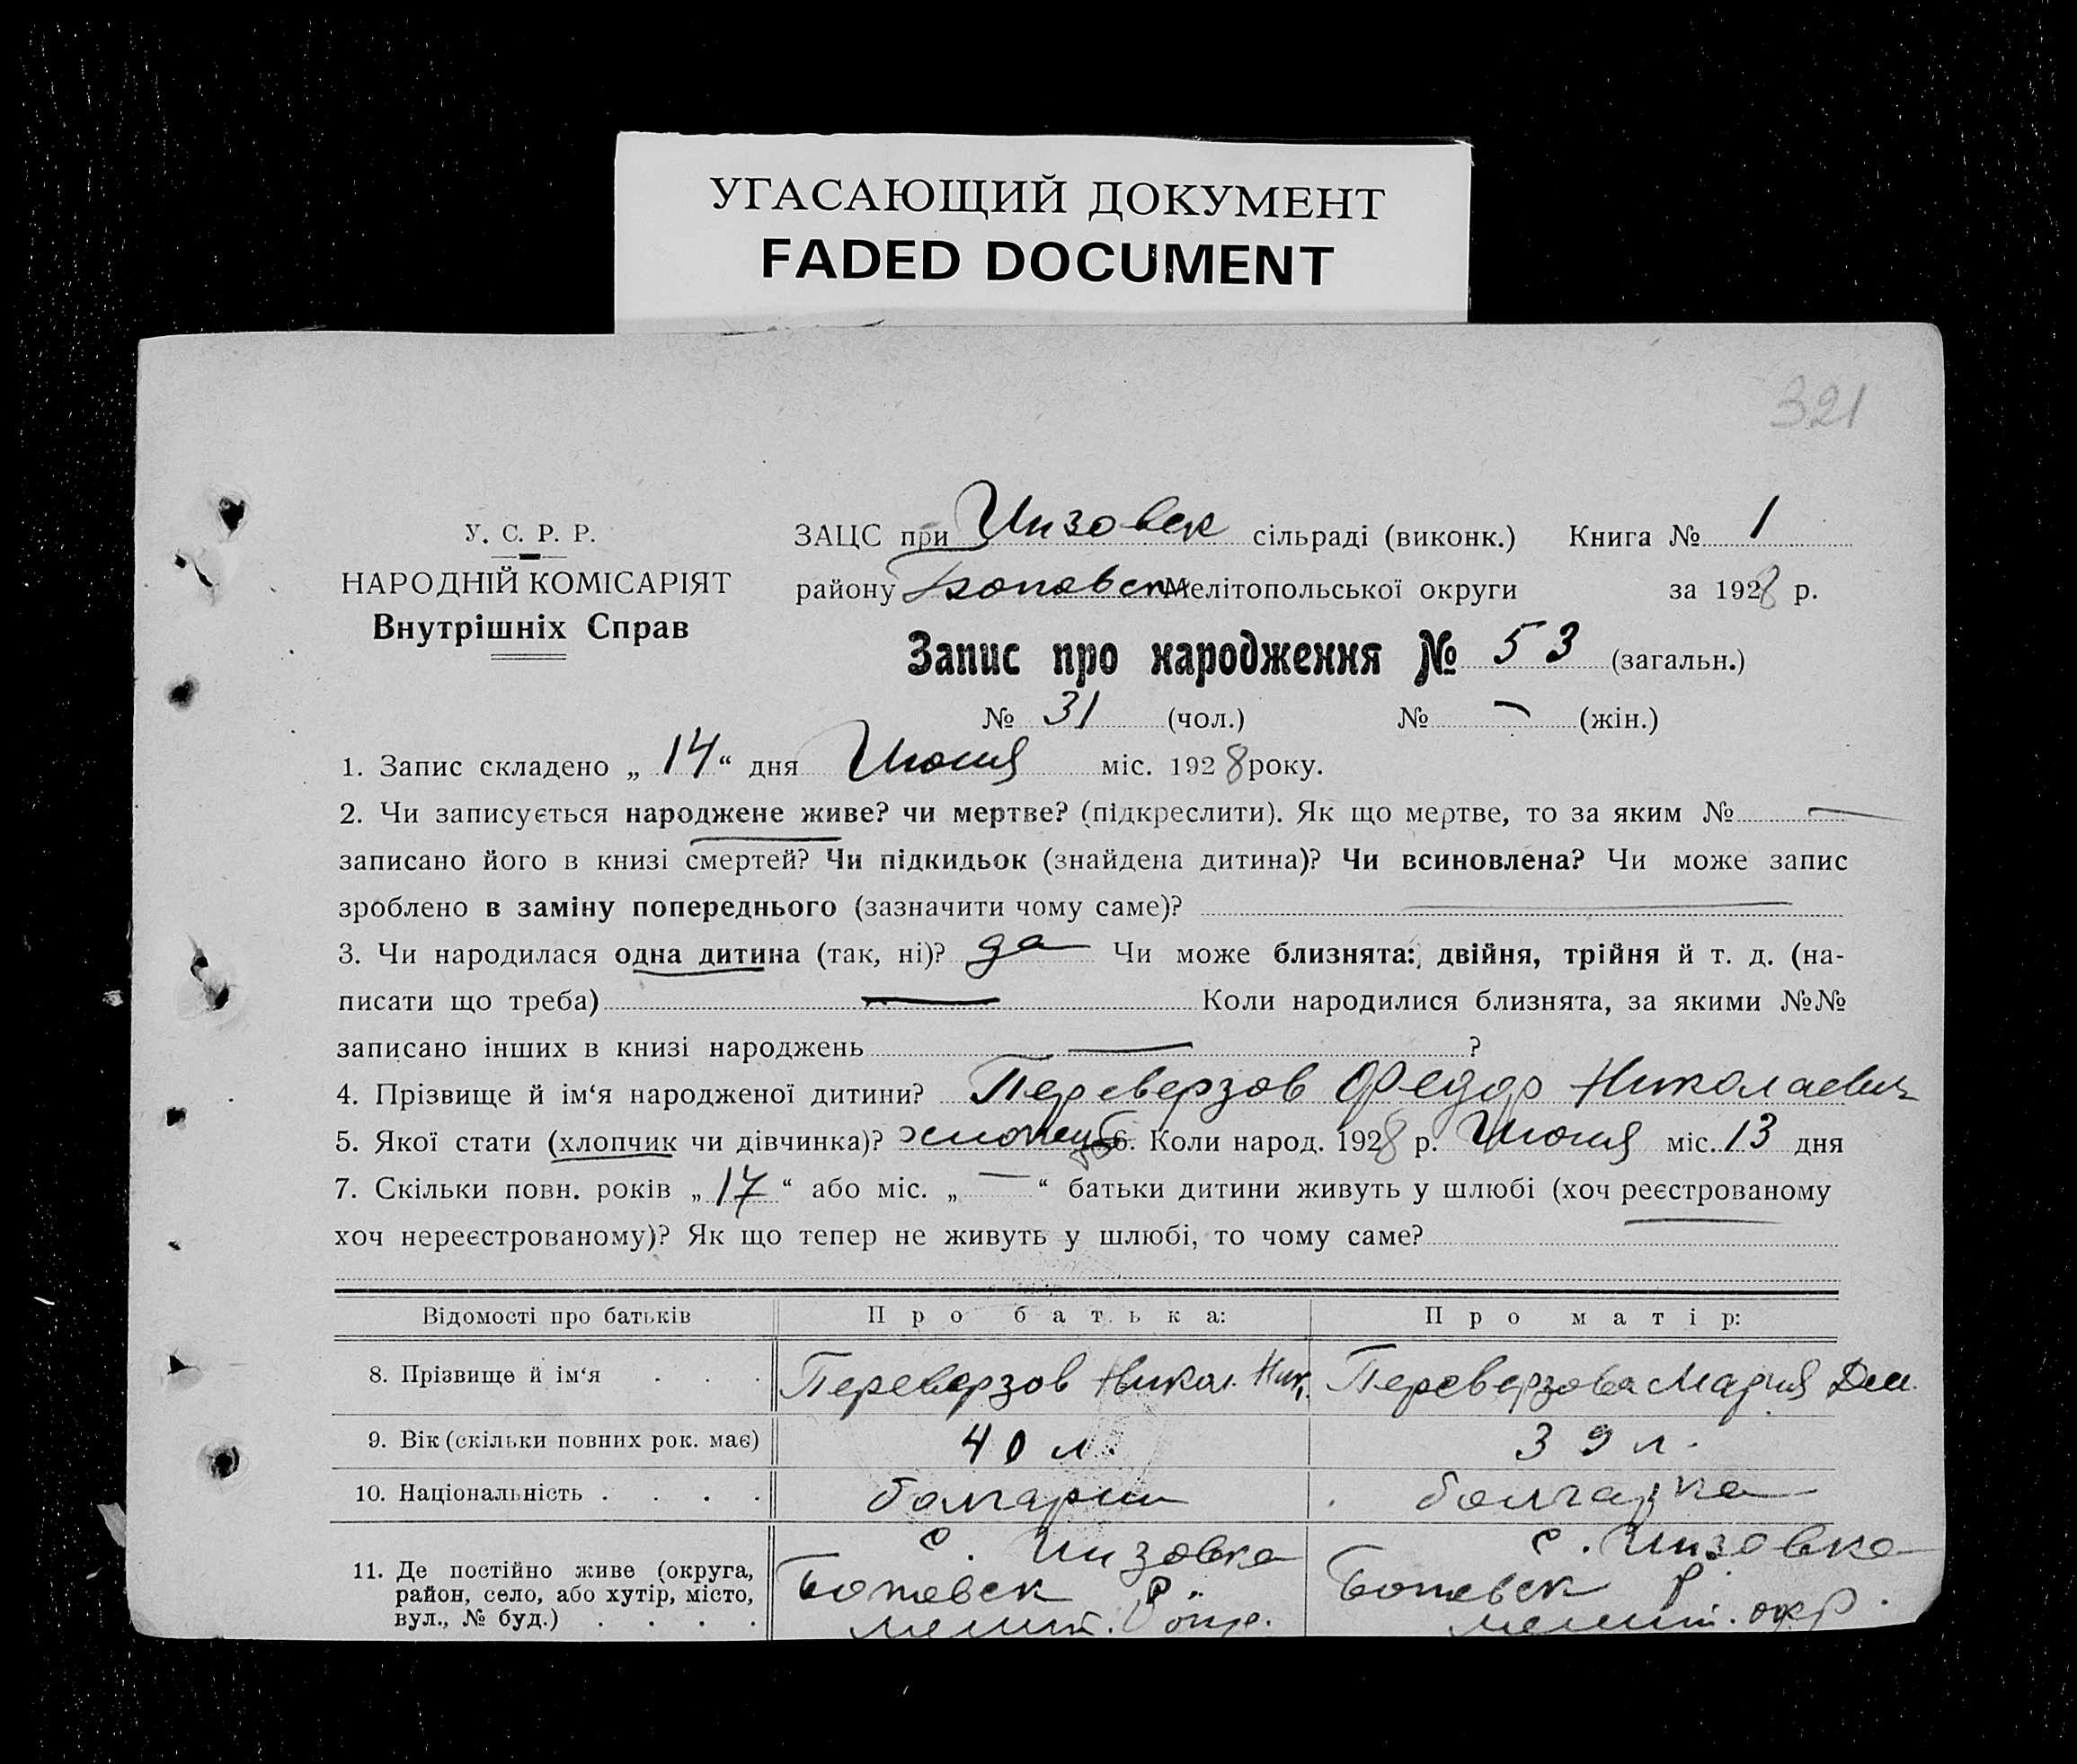 УГАСАЮЩИЙ ДОКУМЕНТ
FADED DOCUMENT
321
У. С. Р. Р.
НАРОДНІЙ КОМІСАРІЯТ
Внутрішніх Справ
ЗАЦС при Инзовск сільраді (виконк.) Книга № 1
району Ботовск Мелітопольської округи за 1928 р.
Запис про народження № 53 (загальн.)
№ 31 (чол.) № — (жін.)
1. Запис складено „ 14 “ дня Июня міс. 1928 року.
2. Чи записується народжене живе? чи мертве? (підкреслити). Як що мертве, то за яким № —
записано його в книзі смертей? Чи підкидьок (знайдена дитина)? Чи всиновлена? Чи може запис
зроблено в заміну попереднього (зазначити чому саме)? —
3. Чи народилася одна дитина (так, ні)? да Чи може близнята: двійня, трійня й т. д. (на-
писати що треба) — Коли народилися близнята, за якими №№
записано інших в книзі народжень — ?
4. Прізвище й ім‘я народженої дитини? Переверзов Федор Николаевич
5. Якої стати (хлопчик чи дівчинка)? хлопец 6. Коли народ. 1928 р. Июня міс. 13 дня
7. Скільки повн. років „ 17 “ або міс. „ — “ батьки дитини живуть у шлюбі (хоч реєстрованому
хоч нереєстрованому)? Як що тепер не живуть у шлюбі, то чому саме?
Відомості про батьків Про батька: Про матір:
8. Прізвище й ім‘я . . . Переверзов Никол. Ник. Переверзова Мария Дм.
9. Вік (скільки повних рок. має) 40 л. 39 л.
10. Національність . . . . болгарин болгарка
11. Де постійно живе (округа,
район, село, або хутір, місто,
вул., № буд.) . . . .
с. Инзовка
Ботевск р.
мелит. окр.
с. Инзовка
Ботевск р.
мелит. окр.